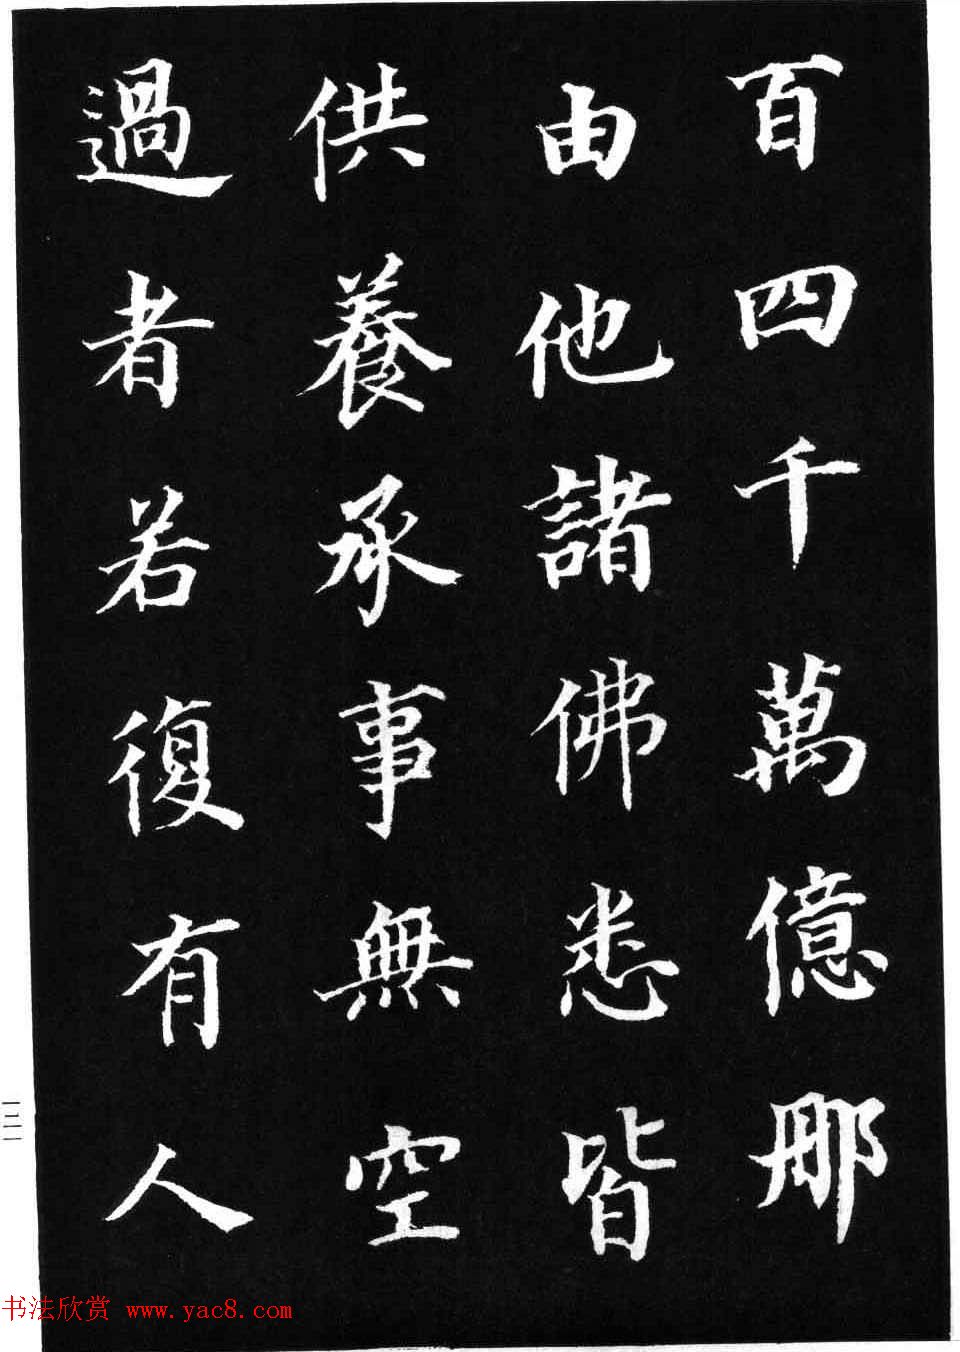 百四千萬億那
由他諸佛悉皆
供養承事無空
過者若復有人
一三一
书法欣赏 www.yac8.com